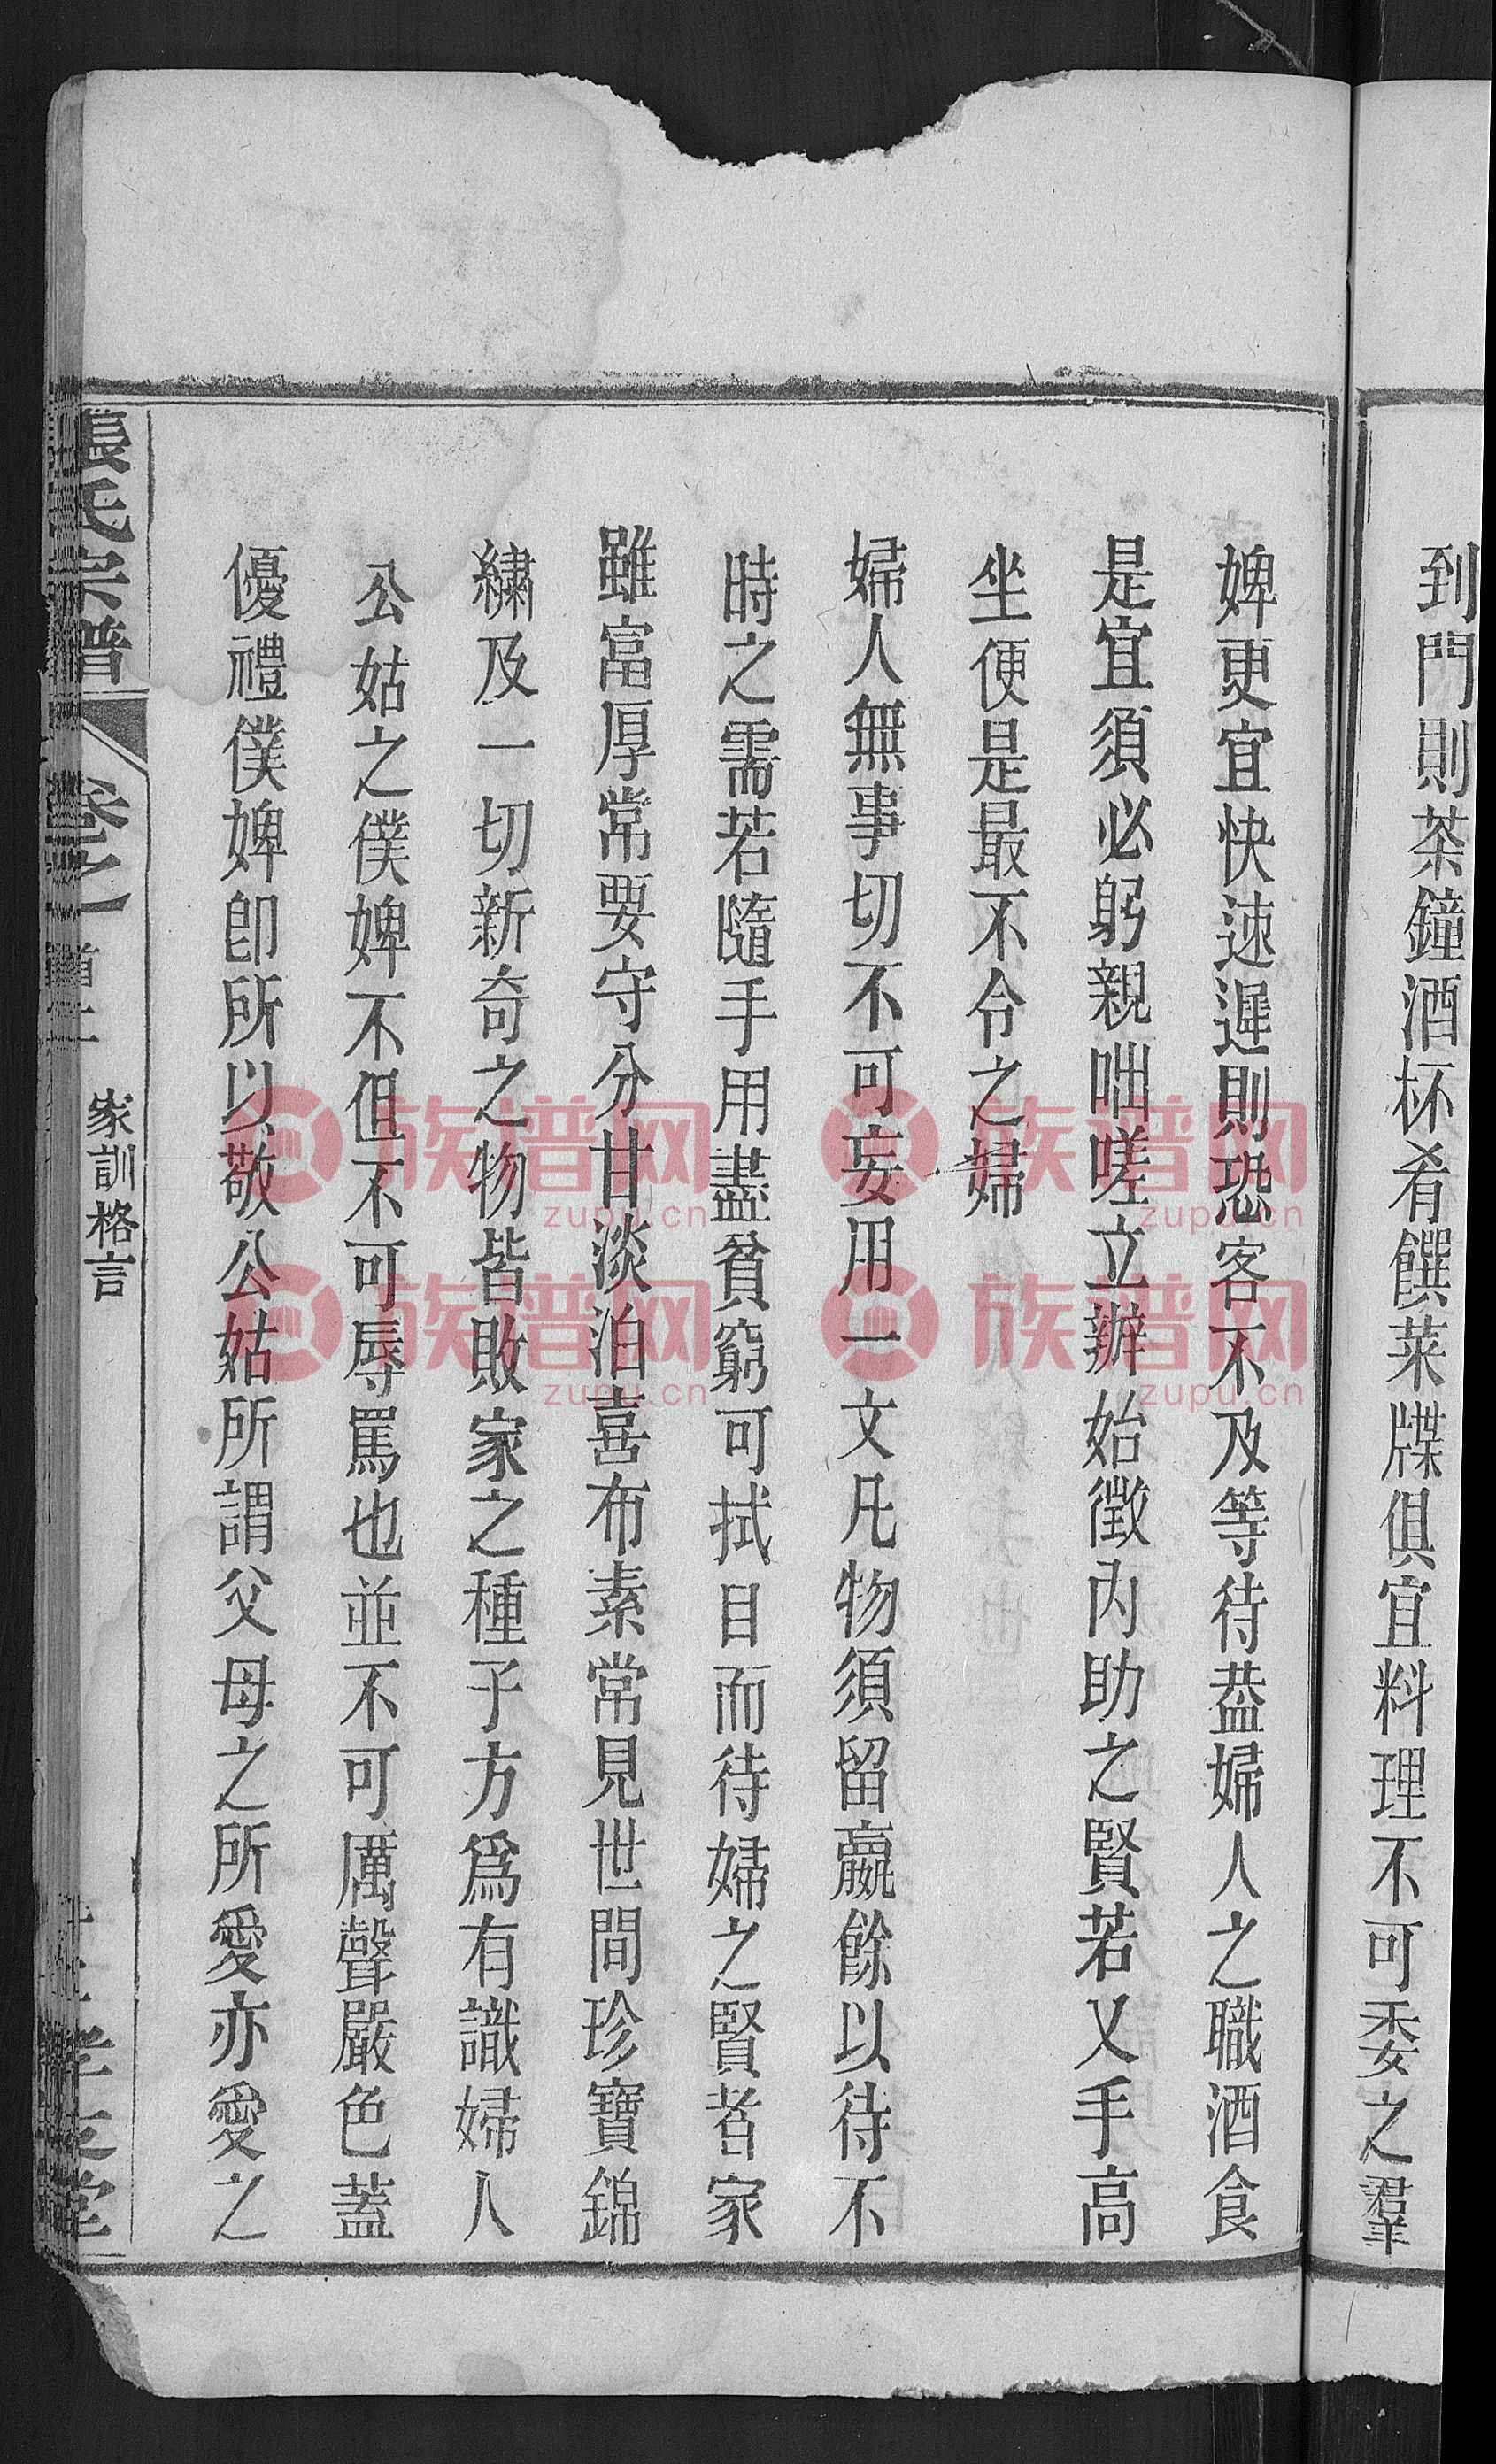 到門則茶鐘酒杯肴饌菜牒俱宜料理不可委之羣
婢更宜快速遲則恐客不及等待葢婦人之職酒食
是宜須必躬親咄嗟立辦始徵內助之賢若又手高
坐便是最不令之婦
婦人無事切不可妄用一文凡物須留嬴餘以待不
時之需若隨手用盡貧窮可拭目而待婦之賢者家
雖富厚常要守分甘淡泊喜布素常見世間珍寶錦
繡及一切新奇之物皆敗家之種子方爲有識婦人
公姑之僕婢不但不可辱罵也並不可厲聲嚴色蓋
優禮僕婢卽所以敬公姑所謂父母之所愛亦愛之
張氏宗譜
卷之
家訓格言
族谱网
zupu.cn
族谱网
zupu.cn
族谱网
zupu.cn
族谱网
zupu.cn